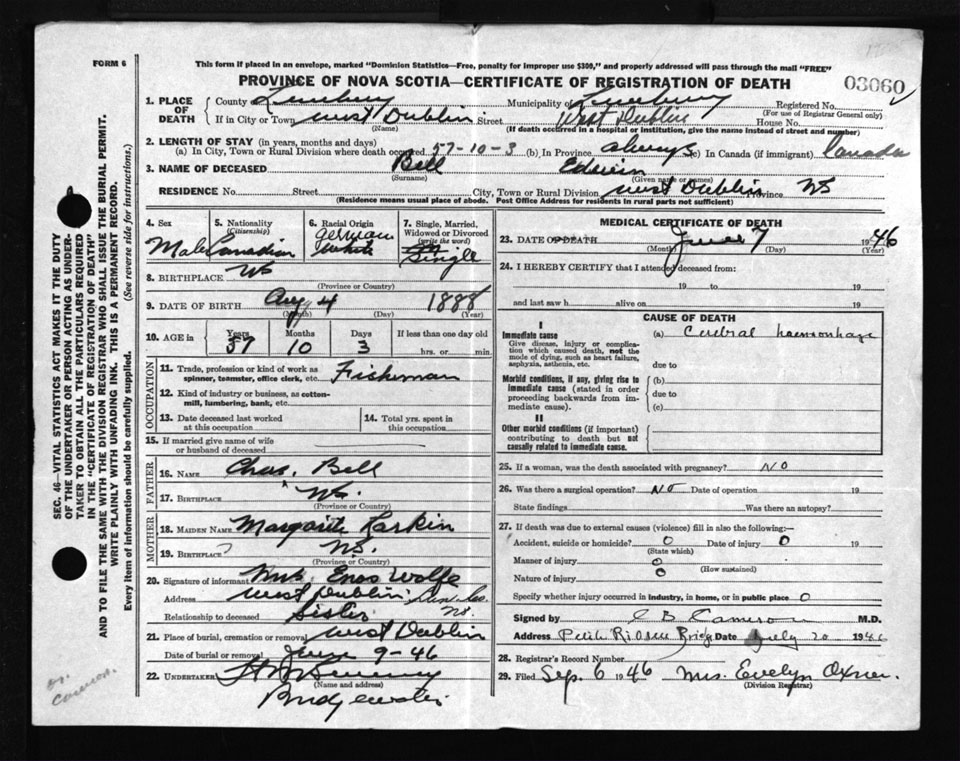 FORM 6
This form if placed in an envelope, marked "Dominion Statistics—Free, penalty for improper use $300," and properly addressed will pass through the mail "FREE"
PROVINCE OF NOVA SCOTIA—CERTIFICATE OF REGISTRATION OF DEATH
03060
1. PLACE OF DEATH
County Lunenburg Municipality of Lunenburg Registered No.
(For use of Registrar General only)
If in City or Town West Dublin Street West Dublin House No.
(Name) (If death occurred in a hospital or institution, give the name instead of street and number)
2. LENGTH OF STAY (in years, months and days)
(a) In City, Town or Rural Division where death occurred 57-10-3 (b) In Province always (c) In Canada (if immigrant) Canada
3. NAME OF DECEASED Bell Edwin
(Surname) (Given name or names)
RESIDENCE No. Street City, Town or Rural Division West Dublin Province NS
(Residence means usual place of abode. Post Office Address for residents in rural parts not sufficient)
4. Sex
Male
5. Nationality
(Citizenship)
Canadian
6. Racial Origin
German
7. Single, Married, Widowed or Divorced
(write the word)
Single
8. BIRTHPLACE NS
(Province or Country)
9. DATE OF BIRTH Aug 4 1888
(Month) (Day) (Year)
10. AGE in Years Months Days If less than one day old
57 10 3 hrs. or min.
OCCUPATION
11. Trade, profession or kind of work as spinner, teamster, office clerk, etc. Fisherman
12. Kind of industry or business, as cotton-mill, lumbering, bank, etc.
13. Date deceased last worked at this occupation
14. Total yrs. spent in this occupation
15. If married give name of wife or husband of deceased
FATHER
16. NAME Chas. Bell
17. BIRTHPLACE NS.
(Province or Country)
MOTHER
18. MAIDEN NAME Margarite Larkin
19. BIRTHPLACE NS.
(Province or Country)
20. Signature of informant Mrs Enos Wolfe
Address West Dublin Lun. Co. NS.
Relationship to deceased Sister
21. Place of burial, cremation or removal West Dublin
Date of burial or removal June 9-46
22. UNDERTAKER
(Name and address)
Bridgewater
MEDICAL CERTIFICATE OF DEATH
23. DATE OF DEATH June 7 1946
(Month) (Day) (Year)
24. I HEREBY CERTIFY that I attended deceased from:
19 to 19
and last saw h alive on 19
CAUSE OF DEATH
I
Immediate cause
Give disease, injury or complication which caused death, not the mode of dying, such as heart failure, asphyxia, asthenia, etc.
(a) Cerebral haemorrhage
due to
Morbid conditions, if any, giving rise to immediate cause (stated in order proceeding backwards from immediate cause).
(b)
due to
(c)
II
Other morbid conditions (if important) contributing to death but not causally related to immediate cause.
25. If a woman, was the death associated with pregnancy? NO
26. Was there a surgical operation? NO Date of operation 19
State findings Was there an autopsy?
27. If death was due to external causes (violence) fill in also the following:—
Accident, suicide or homicide? 0 Date of injury 0 19
(State which)
Manner of injury 0
(How sustained)
Nature of injury 0
Specify whether injury occurred in industry, in home, or in public place 0
Signed by C B Cameron M.D.
Address Petite Riviere Bridge Date July 20 1946
28. Registrar's Record Number
29. Filed Sep. 6 1946 Mrs. Evelyn Oxner.
(Division Registrar)
SEC. 46—VITAL STATISTICS ACT MAKES IT THE DUTY
OF THE UNDERTAKER OR PERSON ACTING AS UNDERTAKER
TO OBTAIN ALL THE PARTICULARS REQUIRED
IN THE "CERTIFICATE OF REGISTRATION OF DEATH"
AND TO FILE THE SAME WITH THE DIVISION REGISTRAR WHO SHALL ISSUE THE BURIAL PERMIT.
WRITE PLAINLY WITH UNFADING INK. THIS IS A PERMANENT RECORD.
Every item of information should be carefully supplied. (See reverse side for instructions.)
Dr. Cameron.